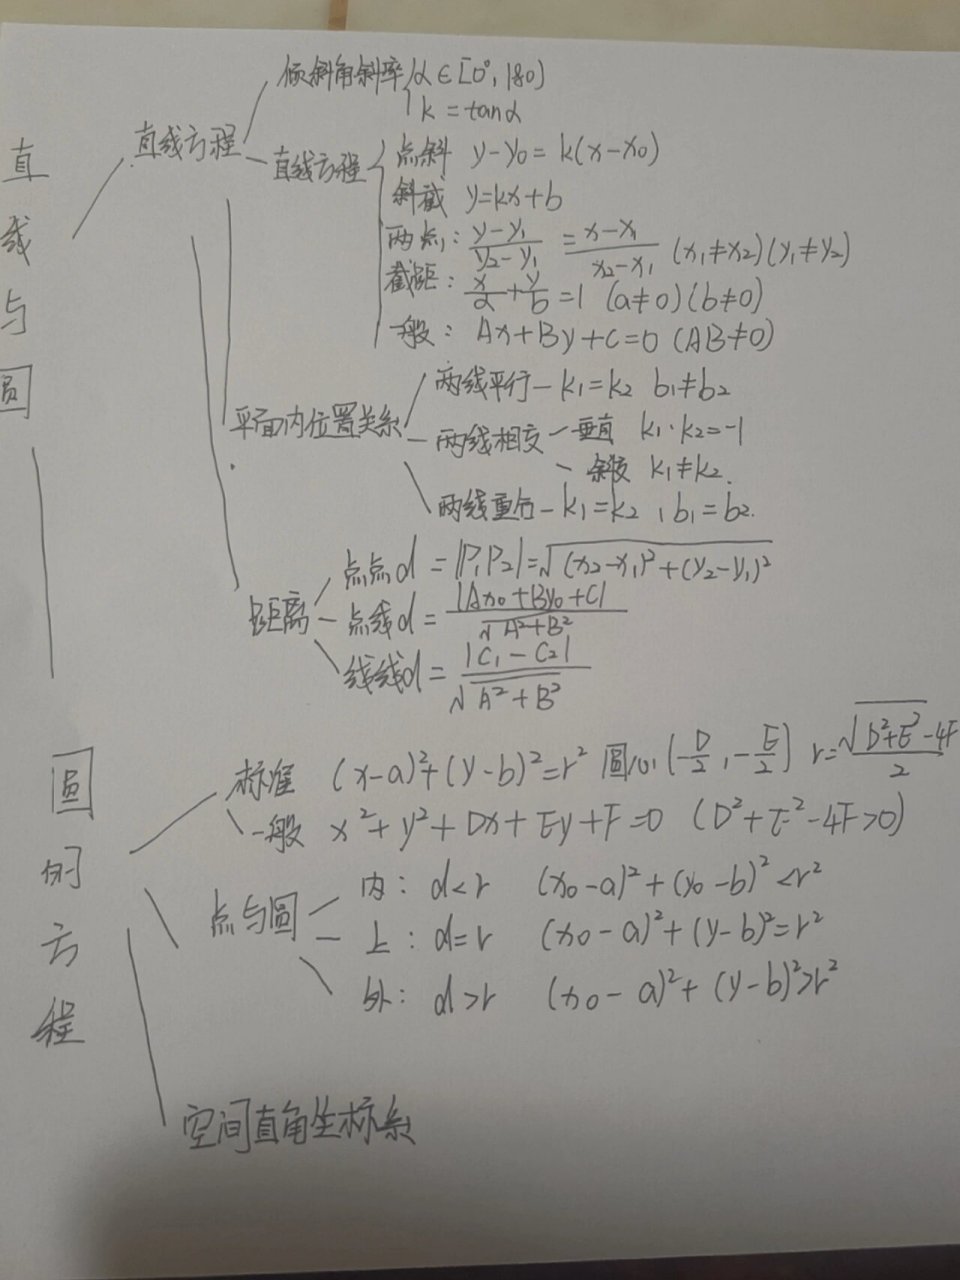 直线与圆
直线方程
倾斜角斜率 α∈[0°, 180)
k = tanα
直线方程
点斜 y-y₀ = k(x-x₀)
斜截 y=kx+b
两点: \frac{y-y₁}{y₂-y₁} = \frac{x-x₁}{x₂-x₁} (x₁≠x₂)(y₁≠y₂)
截距: \frac{x}{a}+\frac{y}{b}=1 (a≠0)(b≠0)
一般: Ax+By+C=0 (AB≠0)
平面内位置关系
两线平行 - k₁=k₂ b₁≠b₂
两线相交 - 垂直 k₁·k₂=-1
- k₁≠k₂.
两线重合 - k₁=k₂, b₁=b₂.
距离
点点d = |P₁P₂|=√((x₂-x₁)²+(y₂-y₁)²)
点线d = \frac{|Ax₀+By₀+C|}{√(A²+B²)}
线线d = \frac{|C₁-C₂|}{√(A²+B²)}
圆的方程
标准 (x-a)²+(y-b)²=r² 圆心(-\frac{D}{2}, -\frac{E}{2}) r=\frac{√(D²+E²-4F)}{2}
一般 x²+y²+Dx+Ey+F=0 (D²+E²-4F>0)
点与圆
内: d<r (x₀-a)²+(y₀-b)²<r²
上: d=r (x₀-a)²+(y-b)²=r²
外: d>r (x₀-a)²+(y-b)²>r²
空间直角坐标系